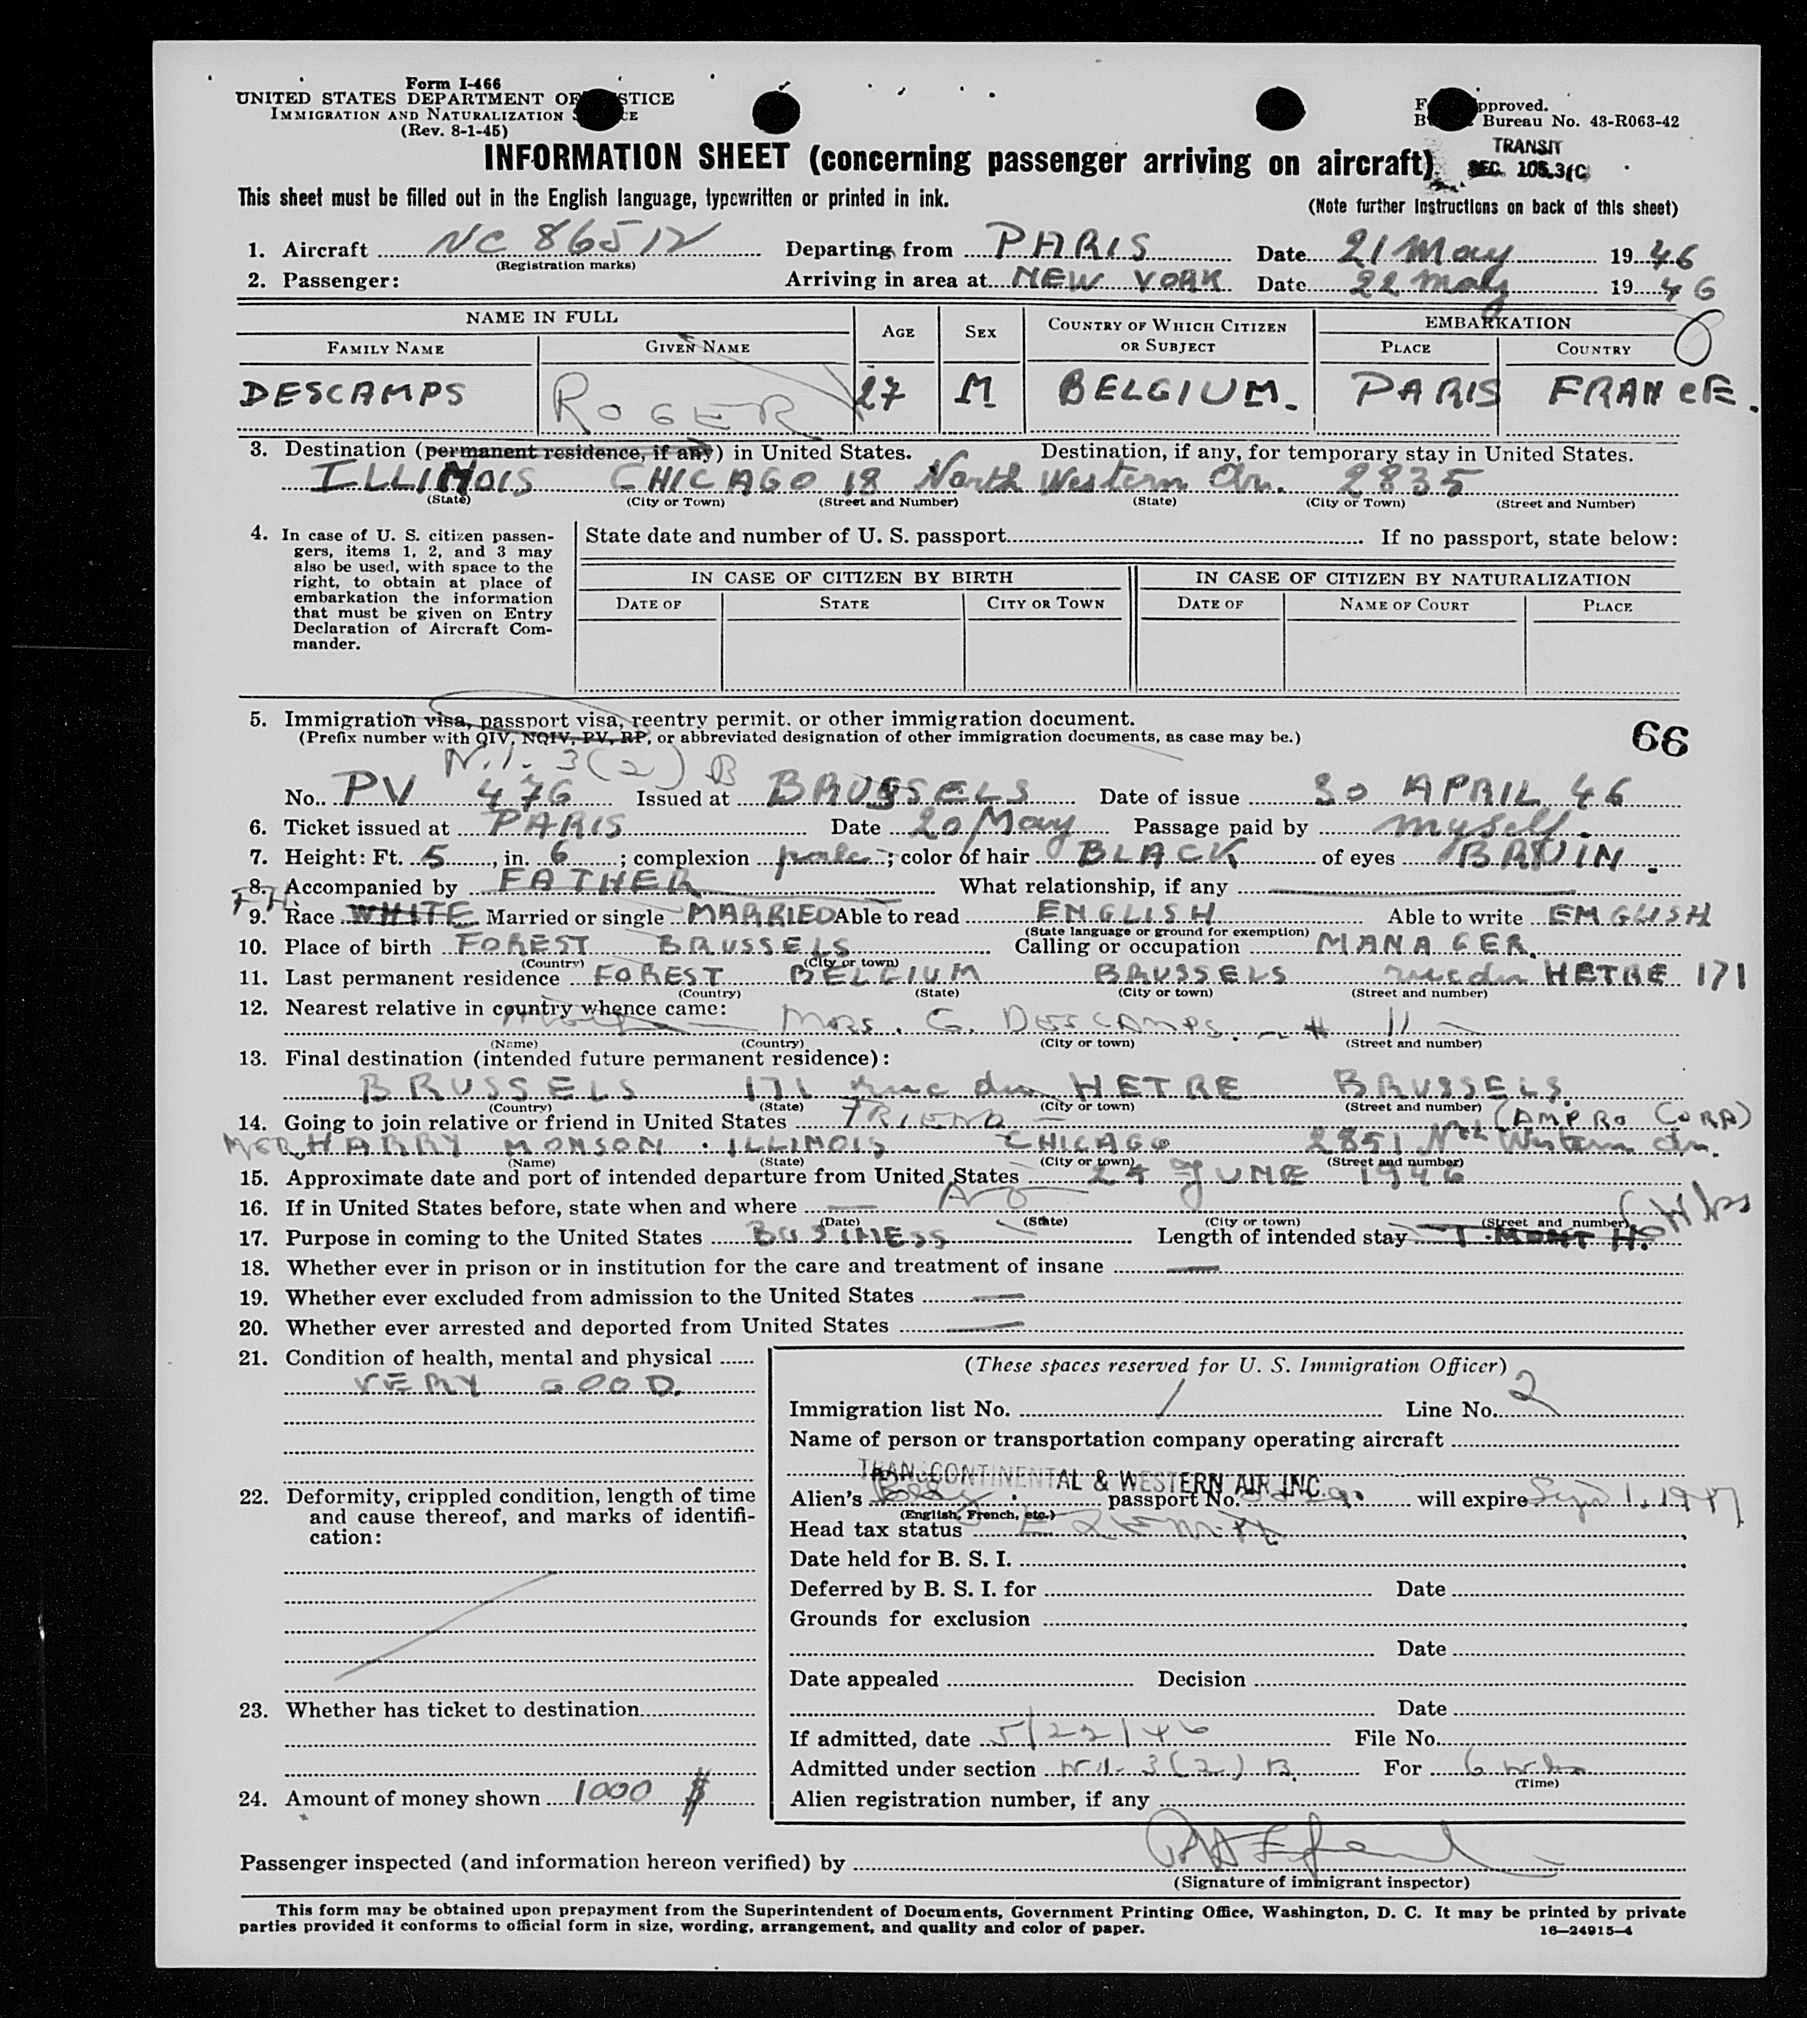 Form I-466
UNITED STATES DEPARTMENT OF STICE
IMMIGRATION AND NATURALIZATION
(Rev. 8-1-45)
pproved.
Bureau No. 43-R063-42
TRANSIT
SEC. 105.3(C)
INFORMATION SHEET (concerning passenger arriving on aircraft)
This sheet must be filled out in the English language, typewritten or printed in ink.
(Note further instructions on back of this sheet)
1. Aircraft NC 86512 Departing from PARIS Date 21 May 1946
(Registration marks)
2. Passenger: Arriving in area at NEW YORK Date 22 may 1946
NAME IN FULL AGE SEX COUNTRY OF WHICH CITIZEN OR SUBJECT EMBARKATION
FAMILY NAME GIVEN NAME PLACE COUNTRY
8
DESCAMPS ROGER 27 M BELGIUM. PARIS FRANCE.
3. Destination (permanent residence, if any) in United States. Destination, if any, for temporary stay in United States.
ILLINOIS CHICAGO 18 North Western Av. 2835
(State) (City or Town) (Street and Number) (State) (City or Town) (Street and Number)
4. In case of U. S. citizen passengers, items 1, 2, and 3 may
also be used, with space to the
right, to obtain at place of
embarkation the information
that must be given on Entry
Declaration of Aircraft Commander.
State date and number of U. S. passport If no passport, state below:
IN CASE OF CITIZEN BY BIRTH IN CASE OF CITIZEN BY NATURALIZATION
DATE OF STATE CITY OR TOWN DATE OF NAME OF COURT PLACE
5. Immigration visa, passport visa, reentry permit. or other immigration document.
(Prefix number with QIV, NQIV, PV, RP, or abbreviated designation of other immigration documents, as case may be.)
66
N.I. 3(2) B
No. PV 476 Issued at BRUSSELS Date of issue 30 APRIL 46
6. Ticket issued at PARIS Date 20 May Passage paid by myself.
7. Height: Ft. 5, in. 6; complexion pale; color of hair BLACK of eyes BRUIN.
8. Accompanied by FATHER What relationship, if any
9. Race WHITE Married or single MARRIED Able to read ENGLISH Able to write ENGLISH
(State language or ground for exemption)
10. Place of birth FOREST BRUSSELS Calling or occupation MANAGER.
(Country) (City or town)
11. Last permanent residence FOREST BELGIUM BRUSSELS rue du HETRE 171
(Country) (State) (City or town) (Street and number)
12. Nearest relative in country whence came:
Mrs. G. DESCAMPS. — # 11 —
(Name) (Country) (City or town) (Street and number)
13. Final destination (intended future permanent residence):
BRUSSELS 171 rue du HETRE BRUSSELS.
(Country) (State) (City or town) (Street and number)
14. Going to join relative or friend in United States FRIEND — (AMPRO CORP)
HARRY MONSON. ILLINOIS CHICAGO 2851 Nth Western Av.
(Name) (State) (City or town) (Street and number)
15. Approximate date and port of intended departure from United States 24 JUNE 1946
16. If in United States before, state when and where — No
(Date) (State) (City or town) (Street and number)
6 Wks
17. Purpose in coming to the United States BUSINESS Length of intended stay 1 MONTH.
18. Whether ever in prison or in institution for the care and treatment of insane —
19. Whether ever excluded from admission to the United States —
20. Whether ever arrested and deported from United States —
21. Condition of health, mental and physical
VERY GOOD.
22. Deformity, crippled condition, length of time
and cause thereof, and marks of identification:
23. Whether has ticket to destination
24. Amount of money shown 1000 $
(These spaces reserved for U. S. Immigration Officer)
Immigration list No. 1 Line No. 2
Name of person or transportation company operating aircraft
TRANSCONTINENTAL & WESTERN AIR INC.
Alien's Belg. passport No. will expire Sept 1, 1947
(English, French, etc.)
Head tax status Exempt
Date held for B. S. I.
Deferred by B. S. I. for Date
Grounds for exclusion
Date
Date appealed Decision
Date
If admitted, date 5/22/46 File No.
Admitted under section N.I. 3(2) B. For 6 wks
(Time)
Alien registration number, if any
Passenger inspected (and information hereon verified) by
(Signature of immigrant inspector)
This form may be obtained upon prepayment from the Superintendent of Documents, Government Printing Office, Washington, D. C. It may be printed by private
parties provided it conforms to official form in size, wording, arrangement, and quality and color of paper.
16—24915-4